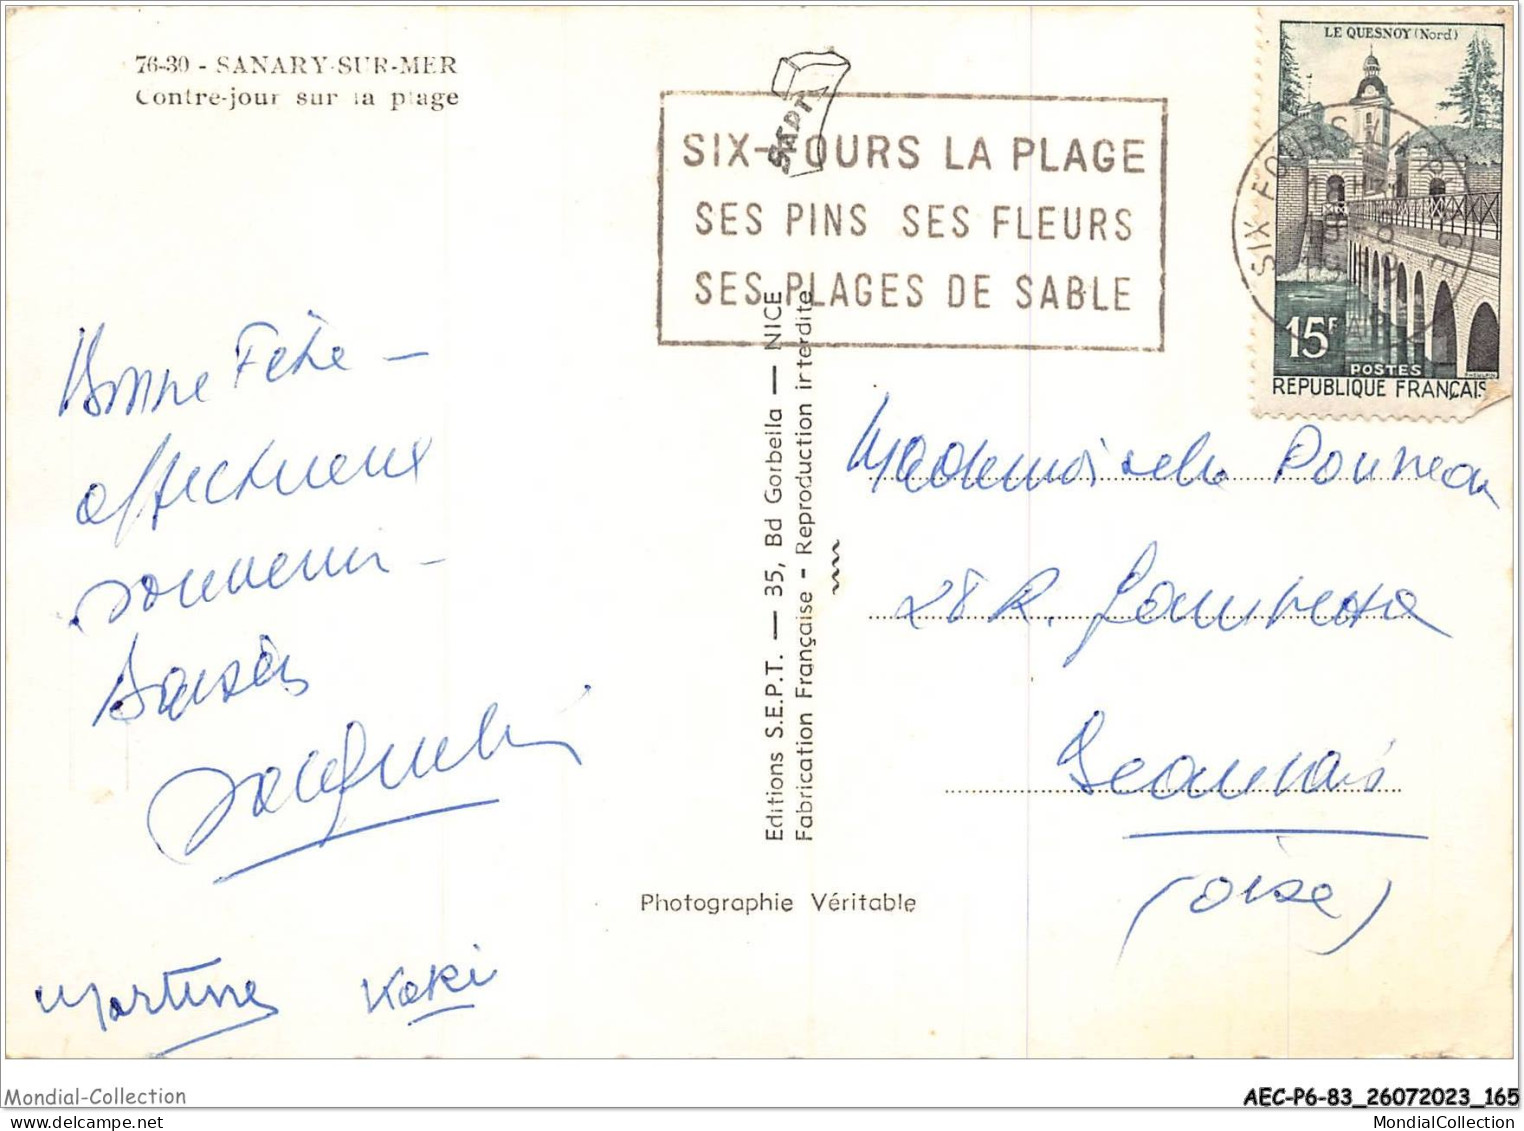 76-30 - SANARY-SUR-MER
Contre-jour sur la plage
SEPT
SIX-FOURS LA PLAGE
SES PINS SES FLEURS
SES PLAGES DE SABLE
LE QUESNOY (Nord)
SIX FOURS LA PLAGE
VAR
15F
POSTES
REPUBLIQUE FRANÇAISE
Bonne Fête -
affectueux
souvenir -
Baisers
Jacqueline
Martine Koki
Editions S.E.P.T. — 35, Bd Gorbella — NICE
Fabrication Française - Reproduction interdite
Photographie Véritable
Mademoiselle
28 R. Gambetta
Beauvais
(Oise)
Mondial-Collection
AEC-P6-83_26072023_165
MondialCollection